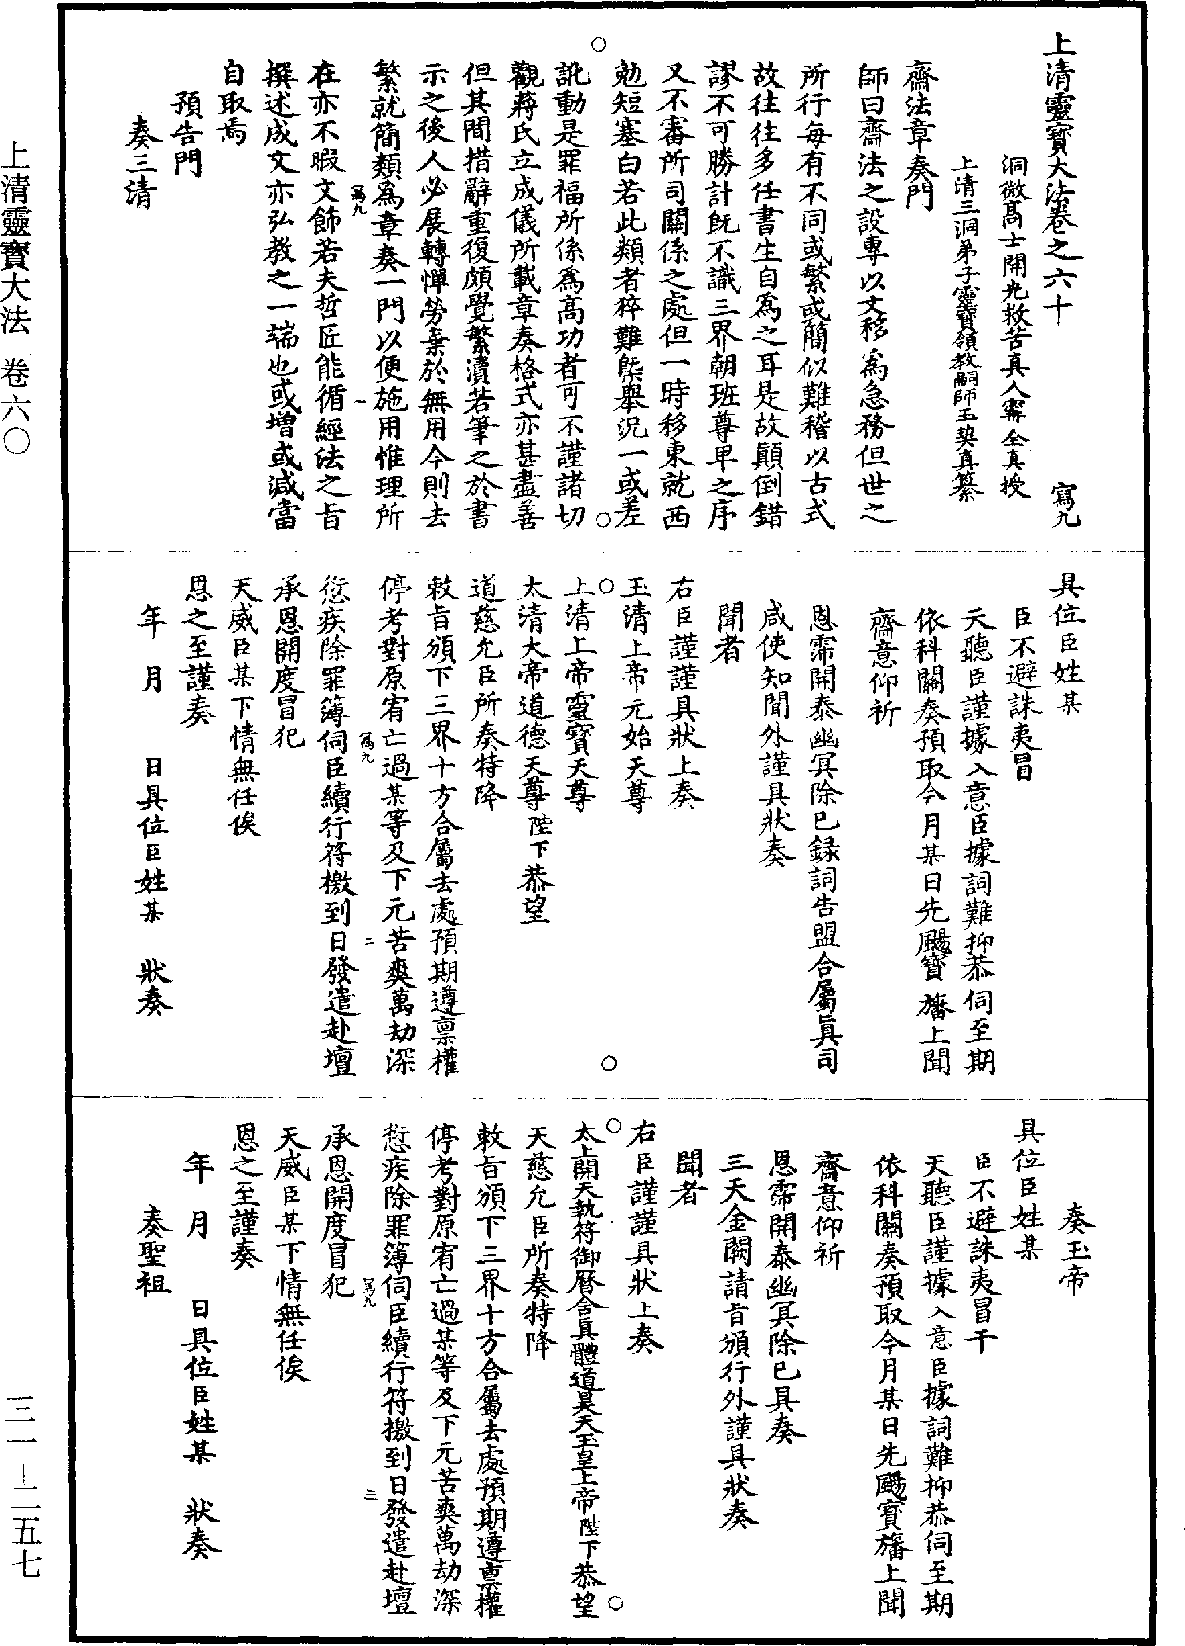 上清靈寶大法卷之六十　寫九
洞微高士開光救苦真人寗全真授
上清三洞弟子靈寶領教嗣師王契真纂
齋法章奏門
師曰齋法之設專以文移為急務但世之
所行每有不同或繁或簡似難稽以古式
故往往多任書生自為之耳是故顛倒錯
謬不可勝計既不識三界朝班尊卑之序
又不審所司關係之處但一時移東就西
勉短塞白若此類者猝難槩舉況一或差
訛動是罪福所係為高功者可不謹諸切
觀蔣氏立成儀所載章奏格式亦甚盡善
但其間措辭重復頗覺繁瀆若筆之於書
示之後人必展轉憚勞棄於無用今則去
繁就簡類為章奏一門以便施用惟理所
寫九　一
在亦不暇文飾若夫哲匠能循經法之旨
撰述成文亦弘教之一端也或增或減當
自取焉
預告門
奏三清
具位臣姓某
臣不避誅夷冒
天聽臣謹據入意臣據詞難抑恭伺至期
依科關奏預取今月某日先颺寶旛上聞
齋意仰祈
恩霈開泰幽冥除已錄詞告盟合屬真司
咸使知聞外謹具狀奏
聞者
右臣謹謹具狀上奏
玉清上帝元始天尊
上清上帝靈寶天尊
太清大帝道德天尊陛下恭望
道慈允臣所奏特降
敕旨頒下三界十方合屬去處預期遵禀權
停考對原宥亡過某等及下元苦爽萬劫深
寫九　二
愆疾除罪簿伺臣續行符檄到日發遣赴壇
承恩開度冒犯
天威臣某下情無任俟
恩之至謹奏
年　月　日具位臣姓某　狀奏
奏玉帝
具位臣姓某
臣不避誅夷冒干
天聽臣謹據入意臣據詞難抑恭伺至期
依科關奏預取今月某日先颺寶旛上聞
齋意仰祈
恩霈開泰幽冥除已具奏
三天金闕請旨頒行外謹具狀奏
聞者
右臣謹謹具狀上奏
太上開天執符御曆含真體道昊天玉皇上帝陛下恭望
天慈允臣所奏特降
敕旨頒下三界十方合屬去處預期遵禀權
停考對原宥亡過某等及下元苦爽萬劫深
愆疾除罪簿伺臣續行符檄到日發遣赴壇
寫九　三
承恩開度冒犯
天威臣某下情無任俟
恩之至謹奏
年　月　日具位臣姓某　狀奏
奏聖祖
上清靈寶大法　卷六〇
三一－二五七